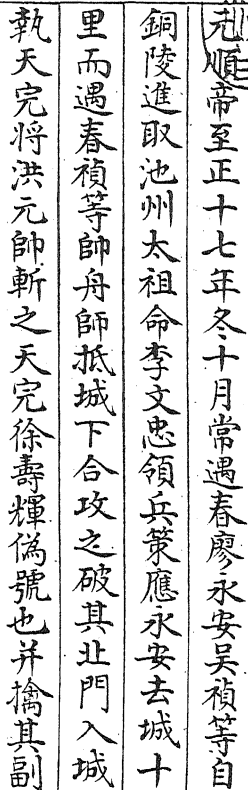 元順帝至正十七年冬十月常遇春廖永安吳禎等自
銅陵進取池州太祖命李文忠領兵策應永安去城十
里而遇春禎等帥舟師抵城下合攻之破其北門入城
執天完将洪元帥斬之天完徐壽輝僞號也并擒其副